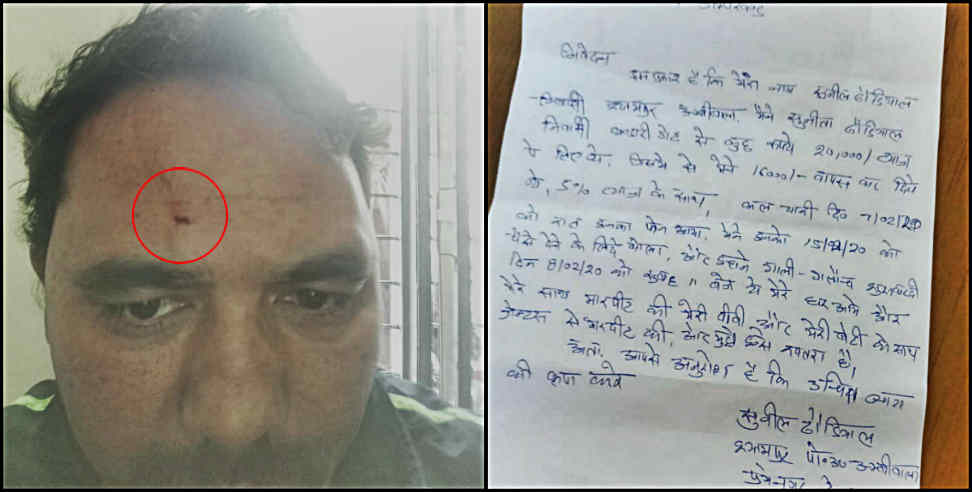 निवेदन
इस प्रकार है कि मेरा नाम सुनील ढौंडियाल
निवासी श्यामपुर अम्बीवाला, मैंने सुनीता ढौंडियाल
निवासी से कुछ रूपये 20,000/ ब्याज
पे लिए थे, जिसमे से मैंने 16000/- वापस कर दिये
थे, 5% ब्याज के साथ, कल यानी दिन 7/02/20
को रात इनका फोन आया, मैंने इनको 15/ /20 को
पैसे देने के लिये बोला, और इन्होंने गाली-गलौच
दिन 8/02/20 को सुबह 11 बजे ये मेरे घर आये और
मेरे साथ मारपीट की मेरी बीवी और मेरी बेटी के साथ
से मारपीट की, और मुझे इनसे खतरा है,
अतः आपसे अनुरोध है कि उचित न्याय
की कृपा करें
सुनील ढौंडियाल
श्यामपुर पो०ओ० अम्बीवाला
प्रेम नगर